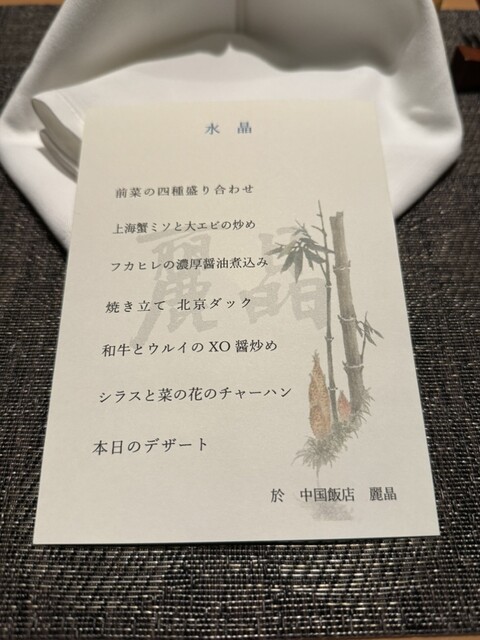 水 晶
前菜の四種盛り合わせ
上海蟹ミソと大エビの炒め
フカヒレの濃厚醤油煮込み
麗晶
焼き立て 北京ダック
和牛とウルイのXO醤炒め
シラスと菜の花のチャーハン
本日のデザート
於 中国飯店 麗晶